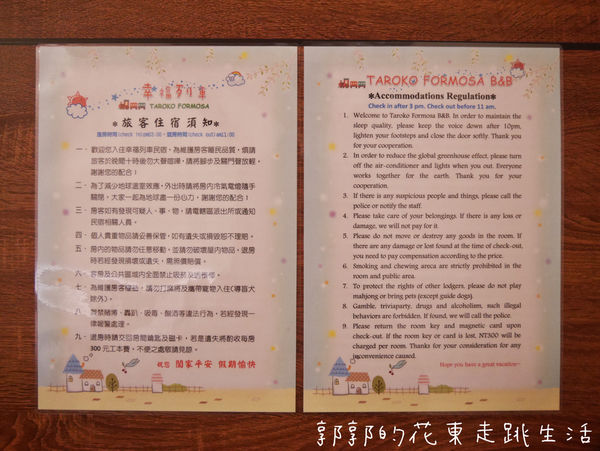 幸福列車
TAROKO FORMOSA
＊旅客住宿須知＊
進房時間(check in)PM03:00，退房時間(check out)AM11:00
一、歡迎您入住幸福列車民宿，為維護房客睡眠品質，煩請
旅客於晚間十時後勿大聲喧嘩，請將腳步及關門聲放輕，
謝謝您的配合！
二、為了減少地球溫室效應，外出時請將房內冷氣電燈隨手
關閉，大家一起為地球盡一份心力，謝謝您的配合！
三、房客如有發現可疑人、事、物，請電轄區派出所或通知
民宿相關人員。
四、個人貴重物品請妥善保管，如有遺失或損毀恕不理賠。
五、房內的物品請勿任意移動，並請勿破壞屋內物品，退房
時若經發現損壞或遺失，需照價賠償。
六、客房及公共區域內全面禁止吸菸及嚼檳榔。
七、為維護房客權益，請勿打麻將及攜帶寵物入住(導盲犬
除外)。
八、嚴禁賭博、轟趴、吸毒、酗酒等違法行為，若經發現一
律報警處理。
九、退房時請交回房間鑰匙及磁卡，若是遺失將酌收每房
300元工本費，不便之處敬請見諒。
祝您 闔家平安 假期愉快
TAROKO FORMOSA B&B
＊Accommodations Regulation＊
Check in after 3 pm. Check out before 11 am.
1. Welcome to Taroko Formosa B&B. In order to maintain the
sleep quality, please keep the voice down after 10pm,
lighten your footsteps and close the door softly. Thank you
for your cooperation.
2. In order to reduce the global greenhouse effect, please turn
off the air-conditioner and lights when you out. Everyone
works together for the earth. Thank you for your
cooperation.
3. If there is any suspicious people and things, please call the
police or notify the staff.
4. Please take care of your belongings. If there is any loss or
damage, we will not pay for it.
5. Please do not move or destroy any goods in the room. If
there are any damage or lost found at the time of check-out,
you need to pay compensation according to the price.
6. Smoking and chewing areca are strictly prohibited in the
room and public area.
7. To protect the rights of other lodgers, please do not play
mahjong or bring pets (except guide dogs).
8. Gamble, triviaparty, drugs and alcoholism, such illegal
behaviors are forbidden. If found, we will call the police.
9. Please return the room key and magnetic card upon
check-out. If the room key or card is lost, NT300 will be
charged per room. Thanks for your consideration for any
inconvenience caused.
Hope you have a great vacation~
郭郭的花東走跳生活